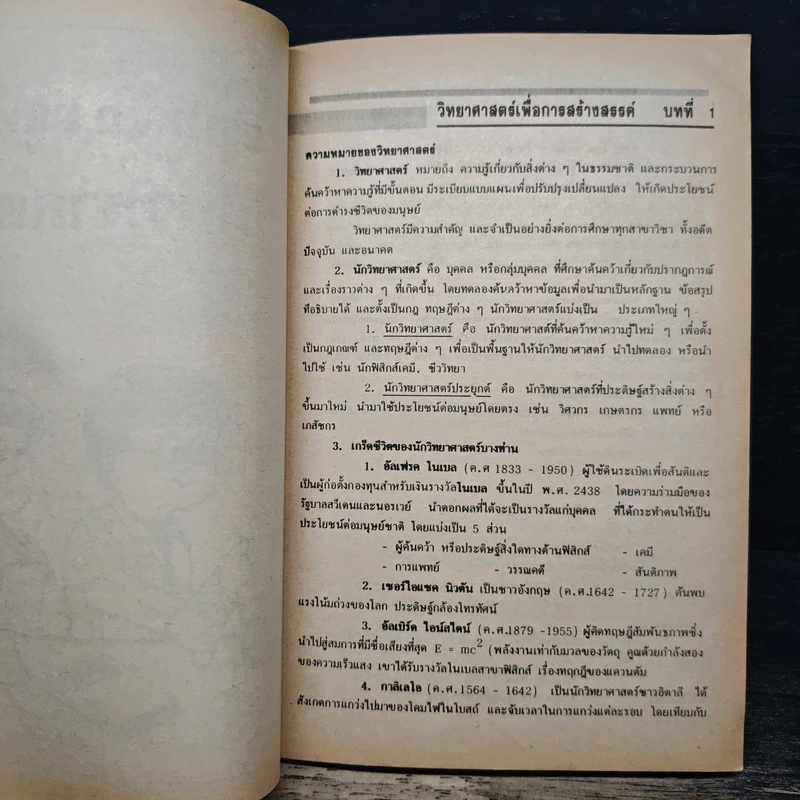 วิทยาศาสตร์เพื่อการสร้างสรรค์ บทที่ 1
ความหมายของวิทยาศาสตร์
1. วิทยาศาสตร์ หมายถึง ความรู้เกี่ยวกับสิ่งต่าง ๆ ในธรรมชาติ และกระบวนการ
ค้นคว้าหาความรู้ที่มีขั้นตอน มีระเบียบแบบแผนเพื่อปรับปรุงเปลี่ยนแปลง ให้เกิดประโยชน์
ต่อการดำรงชีวิตของมนุษย์
วิทยาศาสตร์มีความสำคัญ และจำเป็นอย่างยิ่งต่อการศึกษาทุกสาขาวิชา ทั้งอดีต
ปัจจุบัน และอนาคต
2. นักวิทยาศาสตร์ คือ บุคคล หรือกลุ่มบุคคล ที่ศึกษาค้นคว้าเกี่ยวกับปรากฏการณ์
และเรื่องราวต่าง ๆ ที่เกิดขึ้น โดยทดลองค้นคว้าหาข้อมูลเพื่อนำมาเป็นหลักฐาน ข้อสรุป
ที่อธิบายได้ และตั้งเป็นกฎ ทฤษฎีต่าง ๆ นักวิทยาศาสตร์แบ่งเป็น ประเภทใหญ่ ๆ
1. นักวิทยาศาสตร์ คือ นักวิทยาศาสต์ที่ค้นคว้าหาความรู้ใหม่ ๆ เพื่อตั้ง
เป็นกฎเกณฑ์ และทฤษฎีต่าง ๆ เพื่อเป็นพื้นฐานให้นักวิทยาศาสตร์ นำไปทดลอง หรือนำ
ไปใช้ เช่น นักฟิสิกส์เคมี. ชีววิทยา
2. นักวิทยาศาสตร์ประยุกต์ คือ นักวิทยาศาสตร์ที่ประดิษฐ์สร้างสิ่งต่าง ๆ
ขึ้นมาใหม่ นำมาใช้ประโยชน์ต่อมนุษย์โดยตรง เช่น วิศวกร เกษตรกร แพทย์ หรือ
เภสัชกร
3. เกร็ดชีวิตของนักวิทยาศาสตร์บางท่าน
1. อัลเฟรด โนเบล (ค.ศ 1833 - 1950) ผู้ใช้ดินระเบิดเพื่อสันติและ
เป็นผู้ก่อตั้งกองทุนสำหรับเงินรางวัลโนเบล ขึ้นในปี พ.ศ. 2438 โดยความร่วมมือของ
รัฐบาลสวีเดนและนอรเวย์ นำดอกผลที่ได้จะเป็นรางวัลแก่บุคคล ที่ได้กระทำตนให้เป็น
ประโยชน์ต่อมนุษย์ชาติ โดยแบ่งเป็น 5 ส่วน
- ผู้ค้นคว้า หรือประดิษฐ์สิ่งใดทางด้านฟิสิกส์ - เคมี
- การแพทย์ - วรรณคดี - สันติภาพ
2. เซอร์ไอแซค นิวตัน เป็นชาวอังกฤษ (ค.ศ.1642 - 1727) ค้นพบ
แรงโน้มถ่วงของโลก ประดิษฐ์กล้องโทรทัศน์
3. อัลเบิร์ต ไอน์สไตน์ (ค.ศ.1879 -1955) ผู้คิดทฤษฎีสัมพันธภาพซึ่ง
นำไปสู่สมการที่มีชื่อเสียงที่สุด E = mc² (พลังงานเท่ากับมวลของวัตถุ คูณด้วยกำลังสอง
ของความเร็วแสง เขาได้รับรางวัลโนเบลสาขาฟิสิกส์ เรื่องทฤฎีของแควนตัม
4. กาลิเลโอ (ค.ศ.1564 - 1642) เป็นนักวิทยาศาสตร์ชาวอิตาลี ได้
สังเกตการแกว่งไปมาของโคมไฟในโบสถ์ และจับเวลาในการแกว่งแต่ละรอบ โดยเทียบกับ